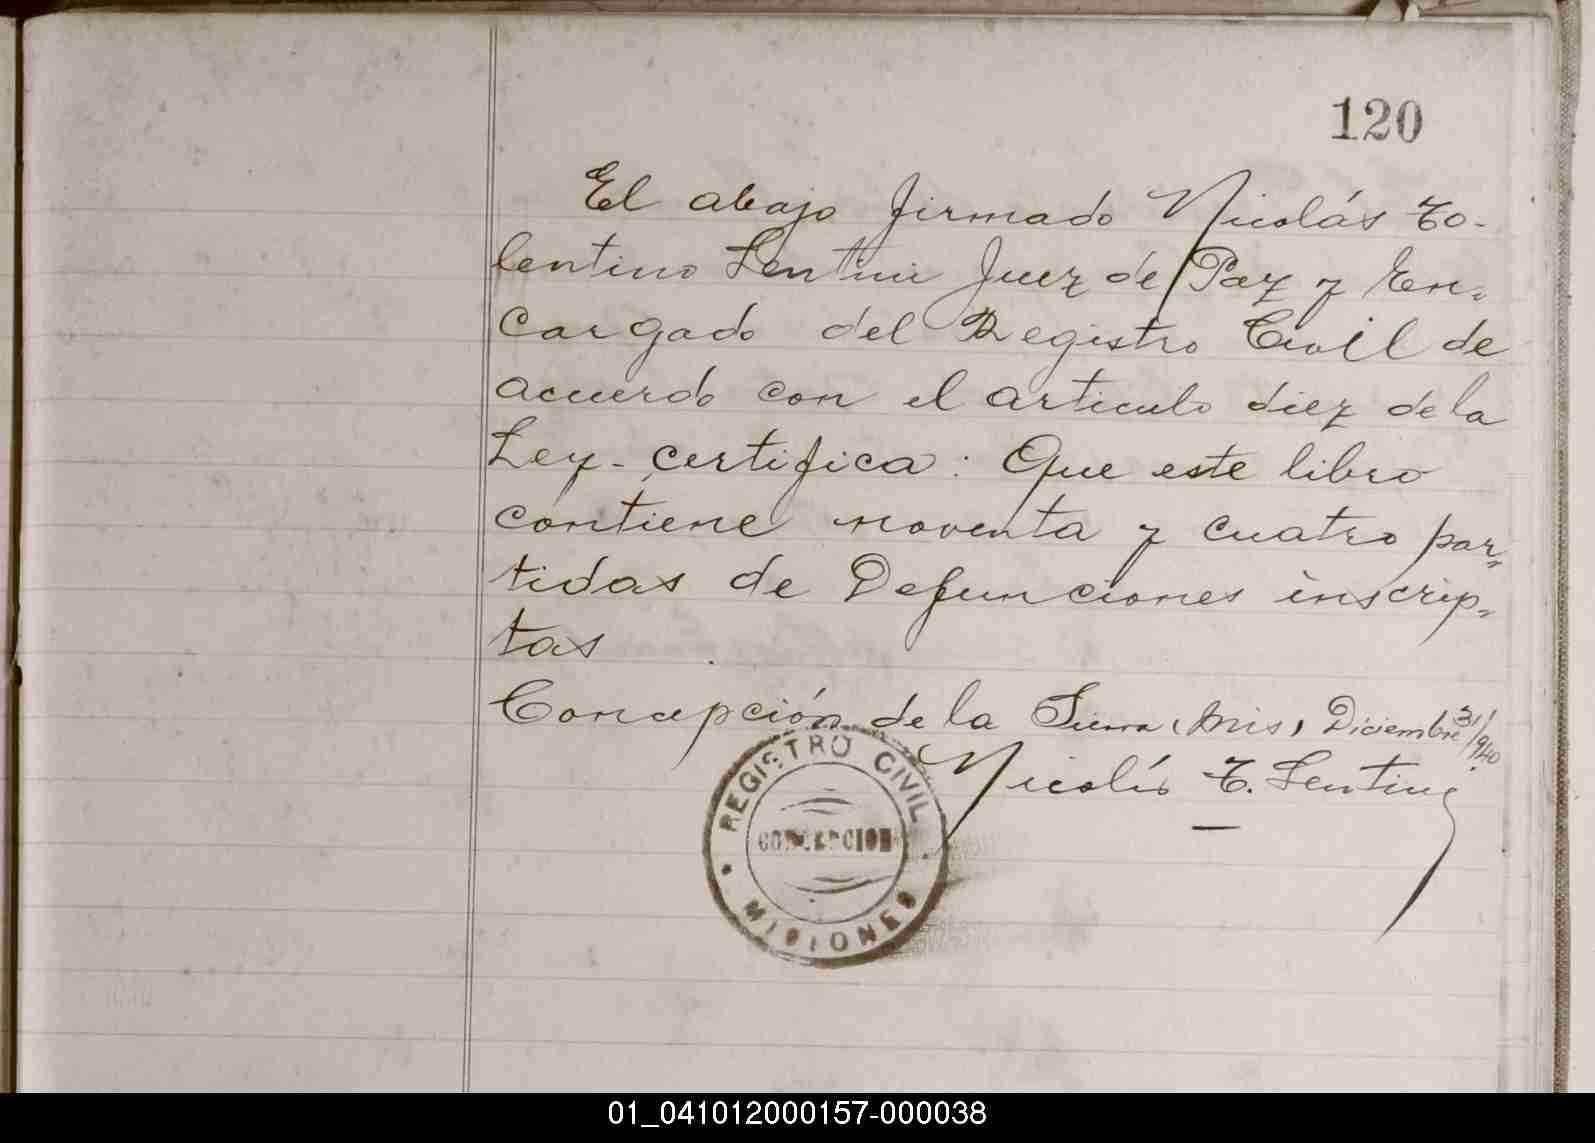 120
El abajo firmado Nicolás To-
lentino Sentini Juez de Paz y En-
cargado del Registro Civil de
acuerdo con el articulo diez de la
Ley - certifica: Que este libro
contiene noventa y cuatro par-
tidas de Defunciones inscrip-
tas
Concepción de la Sierra (Mis) Diciembre 31/940
Nicolás T. Sentini
REGISTRO CIVIL
CONCEPCION
MISIONES
01_041012000157-000038